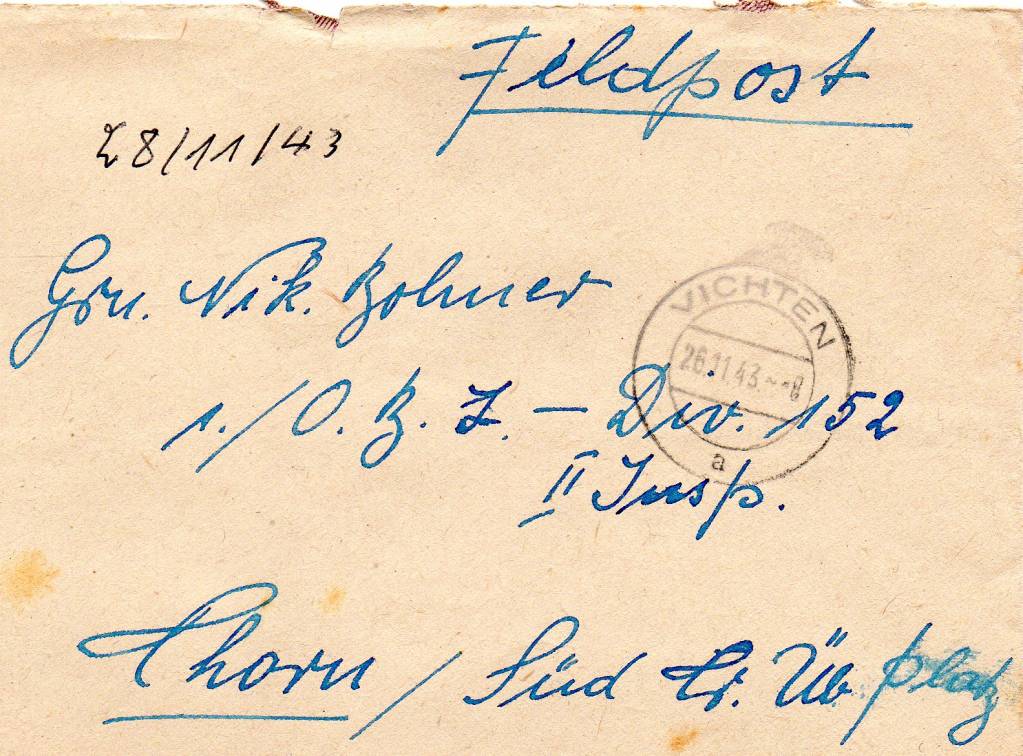 Feldpost
28/11/43
Gren. Nik. Bohmer
1./O. B. L. – Div. 152
II Insp.
Thorn / Süd Tr. Üb. platz
VICHTEN
26.11.43.--8
a